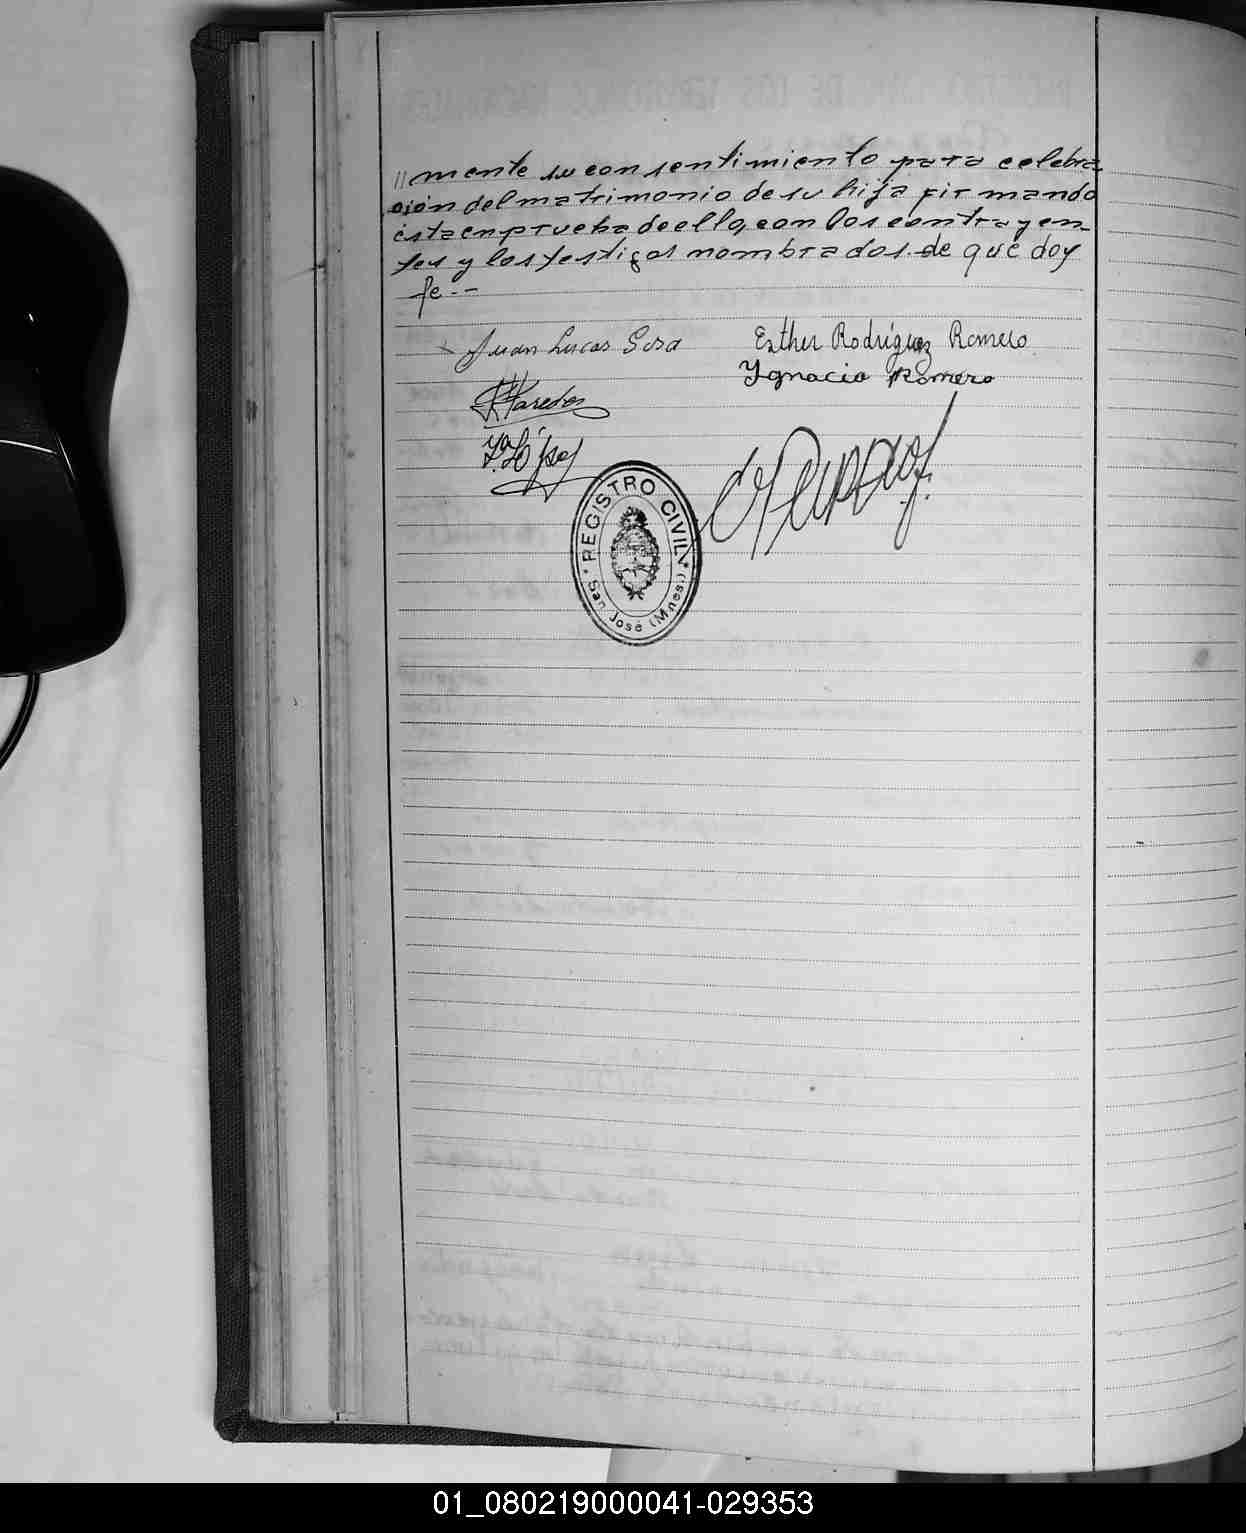 //mente su consentimiento para celebra-
ción del matrimonio de su hija firmando
ésta en prueba de ello, con los contrayen-
tes y los testigos nombrados. de que doy
fe.--
Juan Lucas Sosa
Esther Rodríguez Romero
Ygnacio Romero
Paredes
López
REGISTRO CIVIL
San José (Mnes.)
01_080219000041-029353